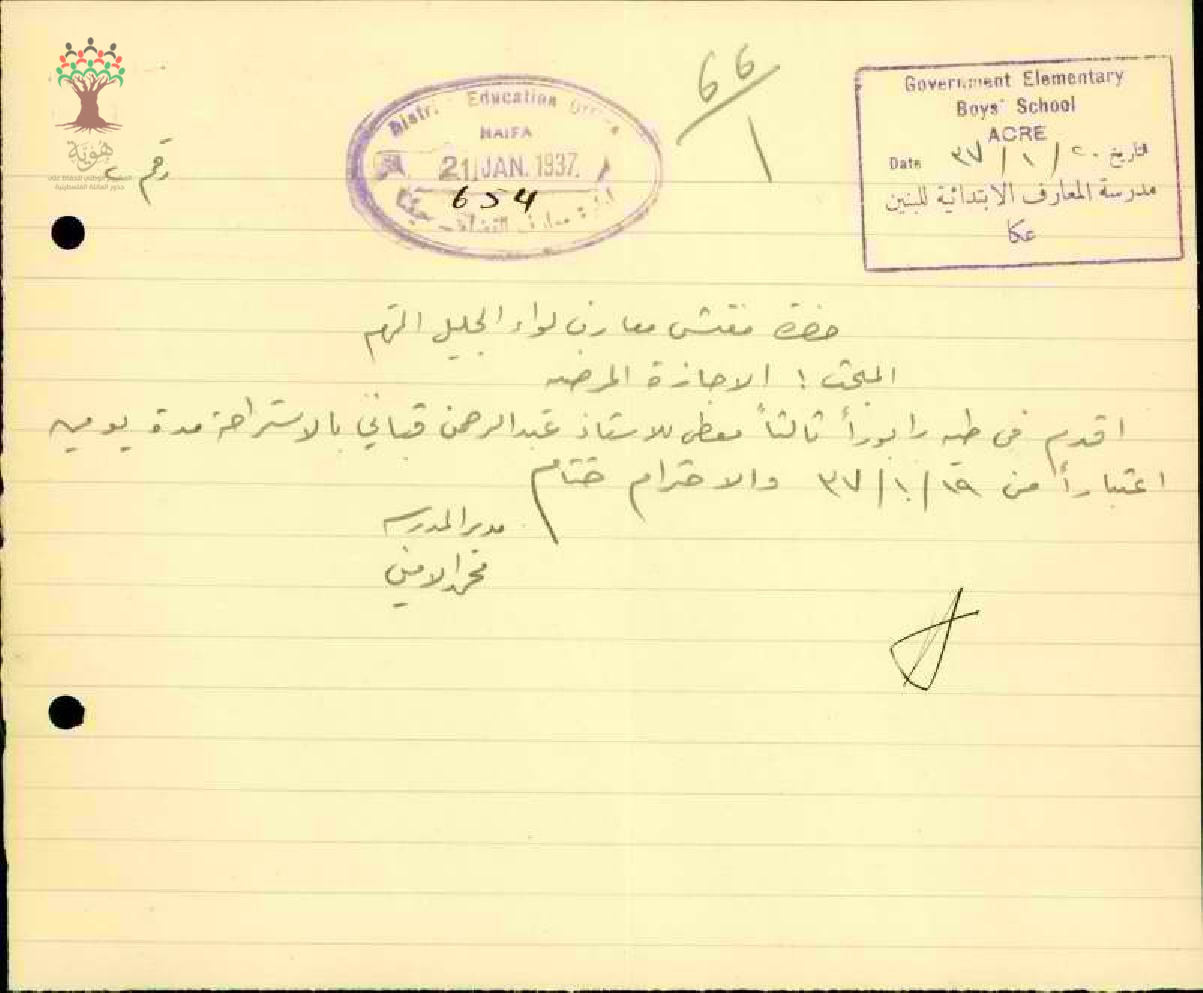 هوية
رقم
66
1
District Education Office
HAIFA
21 JAN. 1937.
654
ادارة معارف
Government Elementary
Boys' School
ACRE
Date ٣٧ / ١ / ٢٠ التاريخ
مدرسة المعارف الابتدائية للبنين
عكا
حضرة مفتش معارف لواء الجليل
المبحث : الاجازة المرضيه
اقدم في طيه رابوراً ثالثاً معطى للاستاذ عبدالرحمن قباني بالاستراحة مدة يومين
اعتباراً من ١٩ / ١ / ٣٧ والاحترام ختام
مدير المدرسه
محمد الامين